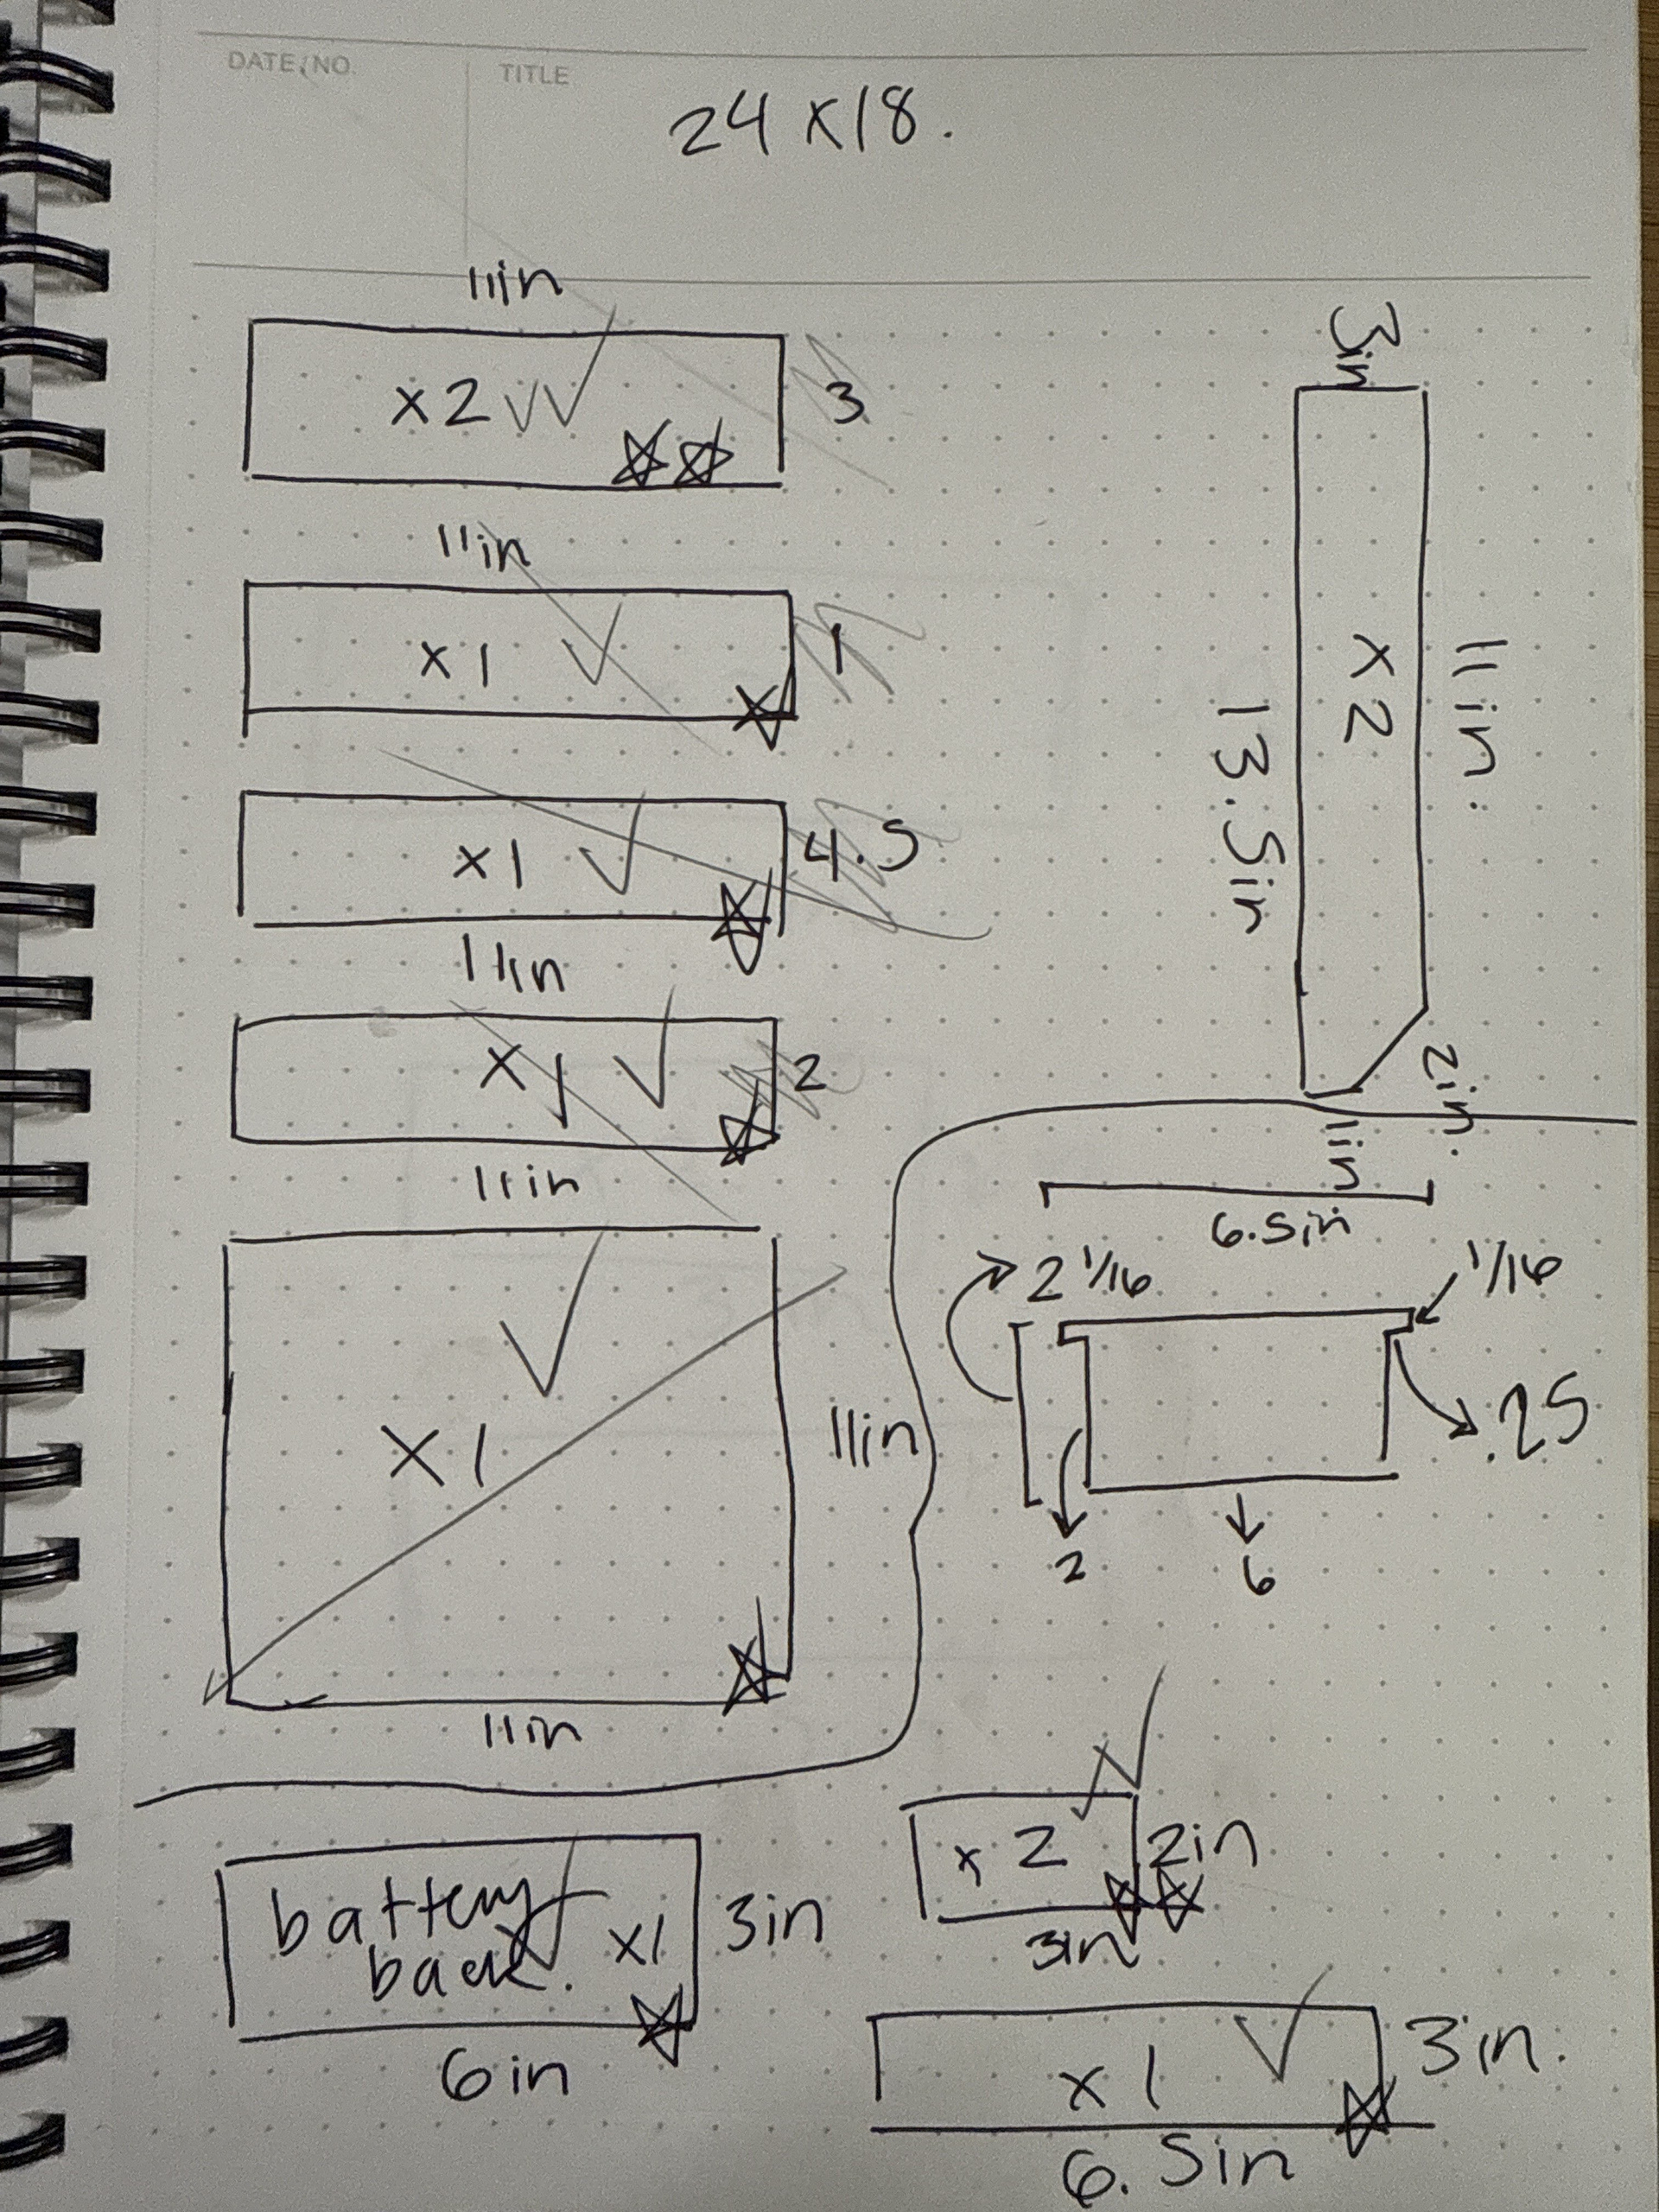 DATE/NO.
TITLE
24 x 18.
11in
x2
3
11in
x1
1
x1
4.5
11in
x1
2
11in
x1
11in
11in
3in
x2
11in.
13.5in
2in.
1in
6.5in
2 1/16
1/16
.25
2
6
battery
back.
x1
3in
6in
x2
2in
3in
x1
3in.
6.5in